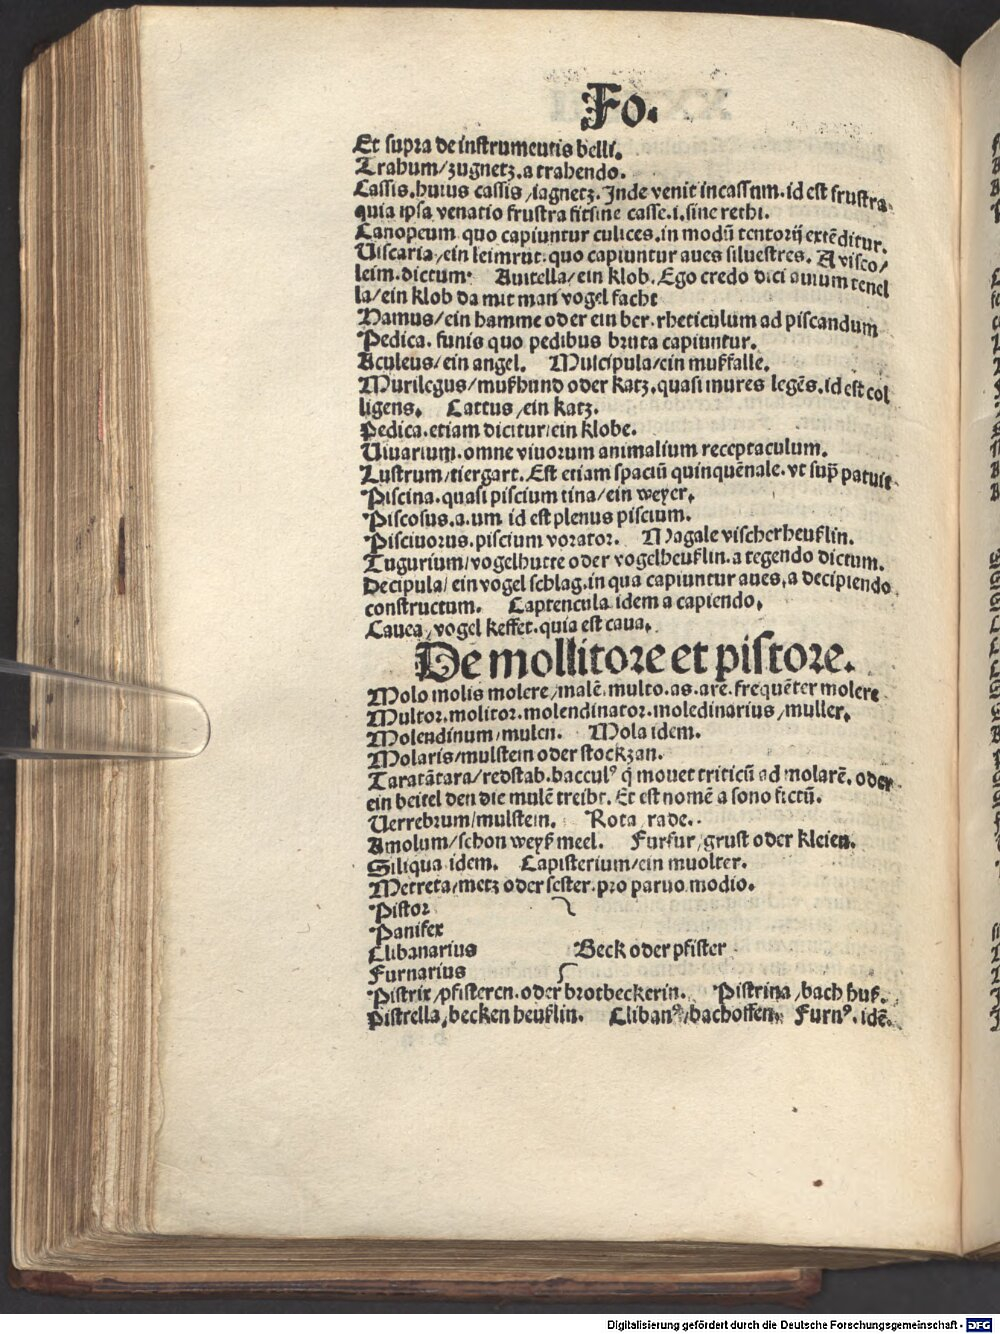 Fo.
Et supra de instrumentis belli.
Trahum/zugnetz.a trahendo.
Cassis.huius cassis/iagnetz.Inde venit incassum.id est frustra.
quia ipsa venatio frustra fit sine casse.i.sine rethi.
Canopeum quo capiuntur culices.in modū tentorij extēditur.
Viscaria/ein leimrut.quo capiuntur aues siluestres. A visco/
leim.dictum. Auicella/ein klob.Ego credo dici auium tenel
la/ein klob da mit man vogel facht
Hamus/ein hamme oder ein ber.rheticulum ad piscandum
Pedica. funis quo pedibus bruta capiuntur.
Aculeus/ein angel. Muscipula/ein mußfalle.
Murilegus/mußhund oder katz.quasi mures legēs.id est col
ligens. Cattus/ein katz.
Pedica.etiam dicitur ein klobe.
Viuarium.omne viuorum animalium receptaculum.
Lustrum/tiergart.Est etiam spaciū quinquēnale.vt sup̄ patuit.
Piscina.quasi piscium tina/ein weyer.
Piscosus.a.um id est plenus piscium.
Pisciuorus.piscium vorator. Magale vischerheußlin.
Tugurium/vogelhutte oder vogelheußlin.a tegendo dictum.
Decipula/ein vogel schlag.in qua capiuntur aues,a decipiendo
constructum. Captencula idem a capiendo.
Cauea/vogel keffet.quia est caua.
De mollitore et pistore.
Molo molis molere/malē.multo.as.are.frequēter molere
Multor.molitor.molendinator.moledinarius/muller.
Molendinum/mulen. Mola idem.
Molaris/mulstein oder stockzan.
Taratātara/redstab.baccul⁹ q̄ mouet triticū ad molarē.oder
ein beitel den die mulē treibt. Et est nomē a sono fictū.
Verrebrum/mulstein. Rota rade.
Amolum/schon weyß meel. Furfur/grust oder kleien.
Siliqua idem. Capisterium/ein muolter.
Metreta/metz oder sester.pro paruo modio.
Pistor
Panifex
Clibanarius Beck oder pfister
Furnarius
Pistrix/pfisteren.oder brotbeckerin. Pistrina/bach huß.
Pistrella/becken heußlin. Cliban⁹/bachoffen. Furn⁹.idē.
Digitalisierung gefördert durch die Deutsche Forschungsgemeinschaft - DFG